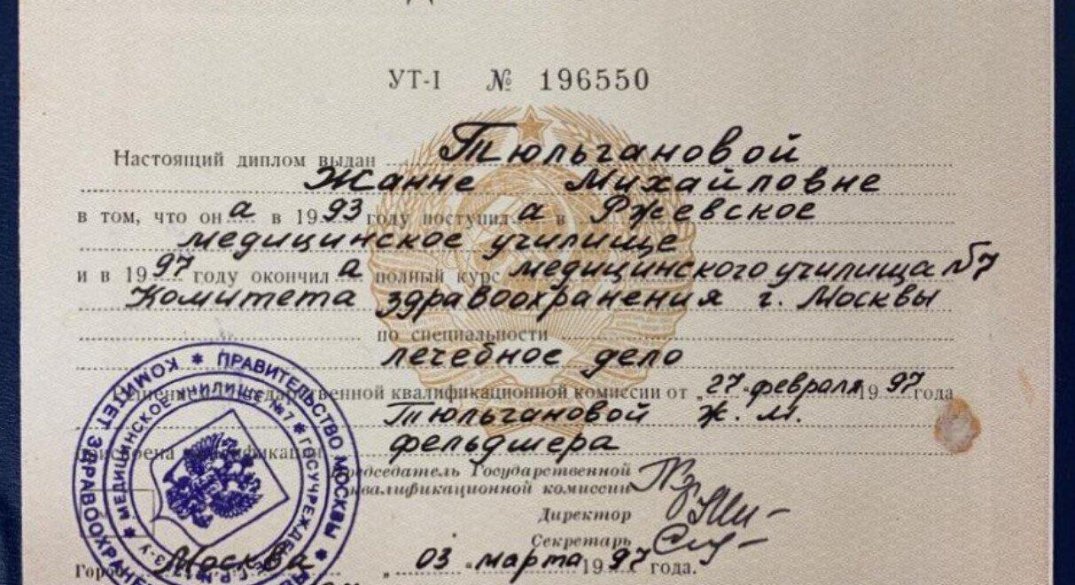 УТ-I № 196550
Настоящий диплом выдан Тюльгановой
Жанне Михайловне
в том, что он а в 1993 году поступил а в Ржевское
медицинское училище
и в 1997 году окончил а полный курс медицинского училища №7
Комитета здравоохранения г. Москвы
по специальности
лечебное дело
Государственной квалификационной комиссии от „27" февраля 1997 года
Тюльгановой Ж. М.
квалификация
фельдшера
Председатель Государственной
квалификационной комиссии
Директор
Секретарь
Город Москва „03" марта 1997 года.
ПРАВИТЕЛЬСТВО МОСКВЫ * КОМИТЕТ ЗДРАВООХРАНЕ
МЕДИЦИНСКОЕ УЧИЛИЩЕ №7 * ГОСУЧРЕЖДЕ